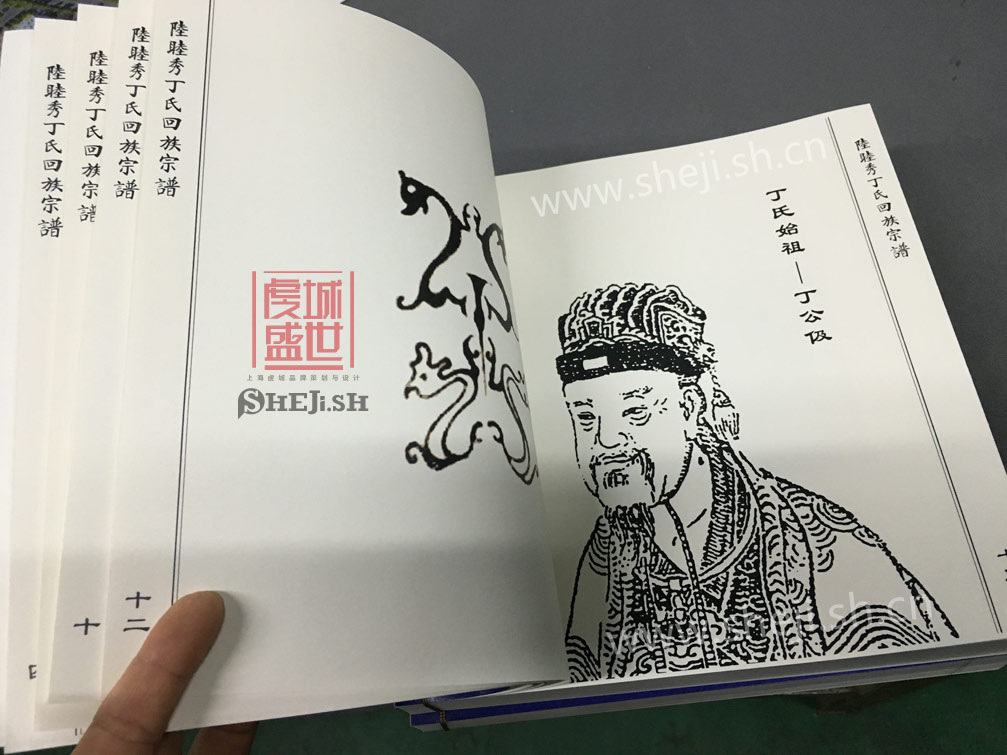 陸睦秀丁氏回族宗譜
陸睦秀丁氏回族宗
陸睦秀丁氏回族宗譜
陸睦秀丁氏回族宗譜
十
十二
虔城
盛世
上海虔城品牌策划与设计
SHEJi.SH
www.sheji.sh.cn
陸睦秀丁氏回族宗譜
丁氏始祖—丁公伋
www.sheji.sh.cn